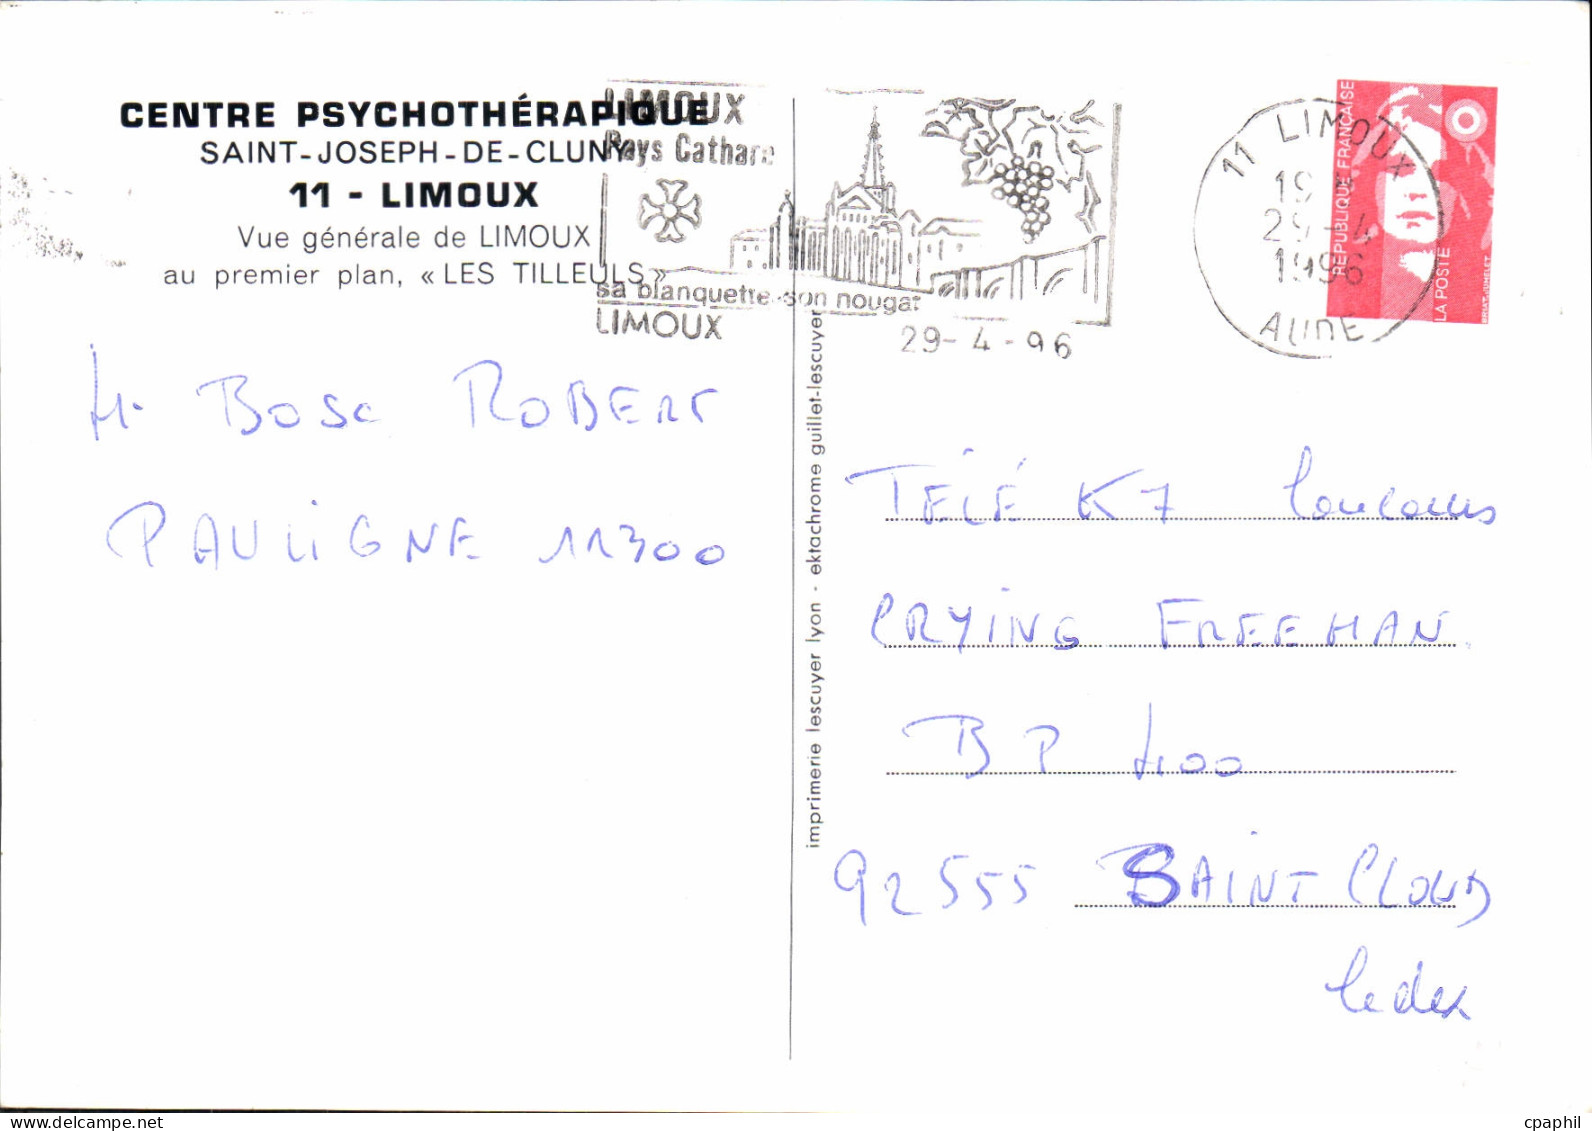 CENTRE PSYCHOTHÉRAPIQUE
SAINT-JOSEPH-DE-CLUNY
11 - LIMOUX
Vue générale de LIMOUX
au premier plan, « LES TILLEULS »
LIMOUX
Pays Cathare
sa blanquette son nougat
LIMOUX
29-4-96
11 LIMOUX
19
29-4
1996
AUDE
REPUBLIQUE FRANÇAISE
LA POSTE
BRIAT-JUMELET
M. BOSC ROBERT
PAULIGNE 11300
imprimerie lescuyer lyon - ektachrome guillet-lescuyer
TÉLÉ K7 Concours
CRYING FREEMAN
BP 400
92555 SAINT CLOUD
Cedex
cpaphil